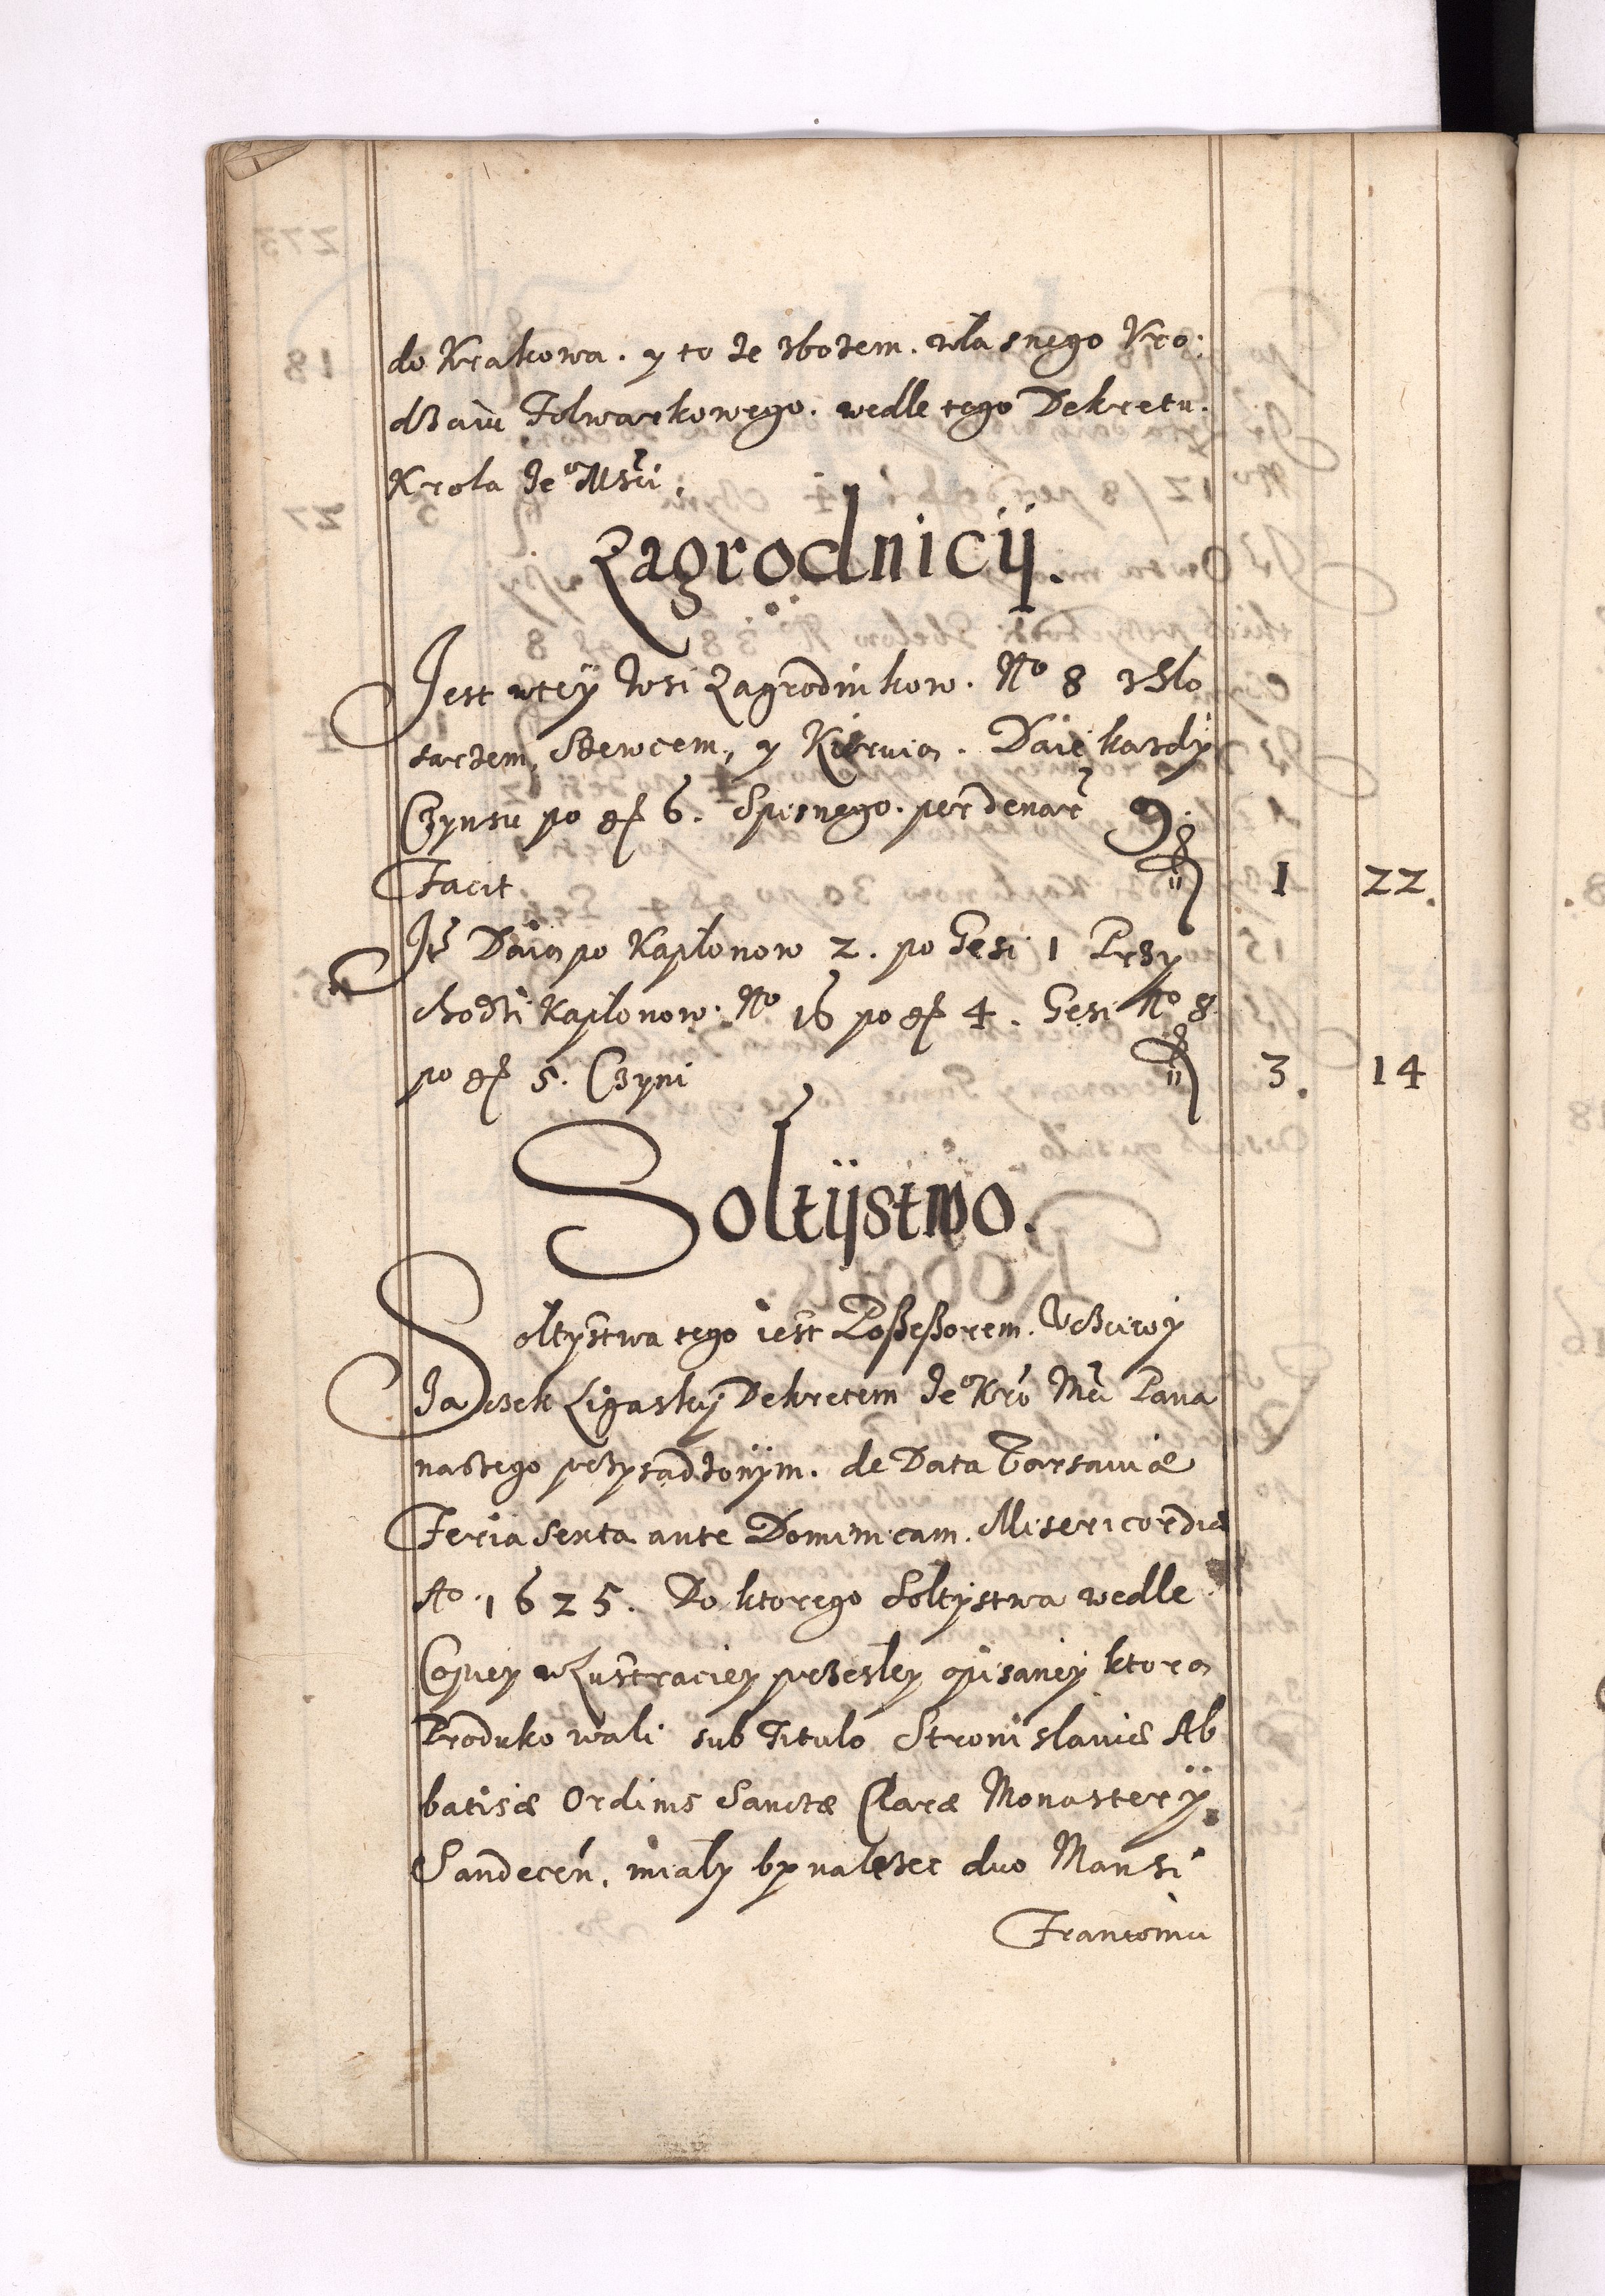 do Krakowa. y to ze zbożem. własnego Vro:
dzaiu Folwarkowego. wedle tego Dekretu.
Krola Je⁰ Mśći.
Zagrodnicy.
Jest w tey Wsi Zagrodnikow. N⁰ 8 z Slo
sarzem, Szewcem, y Kiervią. Daię kazdy
Czynsu po gr 6. Spisnego. per denar 9.
Facit fl 1 22.
Jt Daią po Kaplonow 2. po Gesi 1 Przy
chodzi Kaplonow. N⁰ 16 po gr 4. Gesi N⁰ 8
po gr 5. Czyni fl 3. 14
Soltystwo.
Soltystwa tego iest Poßeßorem. Vczciwy
Jaczek Ligasky Dekretem Je⁰ Kro Mci Pana
naszego przysadzonym. de Data Varsauiæ
Feria Sexta ante Dominicam. Misericordia
A⁰. 1625. Do ktorego Soltystwa wedle
Copiey w Lustraciey przesley opisaney ktorą
Produkowali sub Titulo Stronislauiæ Ab
batisæ Ordinis Sanctæ Claræ Monastery
Sandecen. mialy by nalezec duo Mansi
Franconici